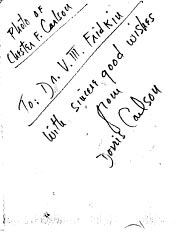 Photo of
Chester F. Carlson
To: Dr. V. M. Fridkin
With sincere good wishes
from
Dorris Carlson